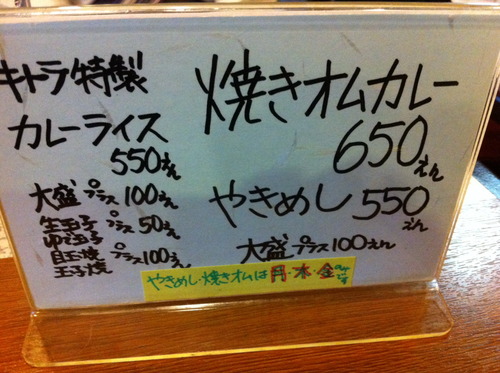 キトラ特製
カレーライス
550えん
大盛プラス100えん
生玉子
ゆで玉子
プラス50えん
目玉焼
玉子焼
プラス100えん
焼きオムカレー
650えん
やきめし550えん
大盛プラス100えん
やきめし・焼きオムは月・木・金